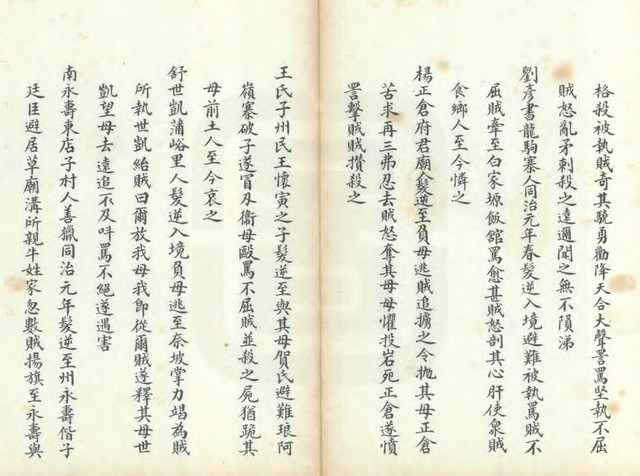 格殺被執賊奇其驍勇勸降天合大聲詈罵坚執不屈
賊怒亂矛刺殺之遠邇聞之無不隕涕
劉彥書龍駒寨人同治元年春髮逆入境避難被執罵賊不
屈賊牽至白家塬飯舘罵愈甚賊怒剖其心肝使衆賊
食鄉人至今憐之
楊正倉府君廟人髮逆至負母逃賊追擄之令抛其母正倉
苦求再三弗忍去賊怒奪其母母懼投岩死正倉遂憤
詈擊賊賊攢殺之
王氏子州民王懷寅之子髮逆至與其母賀氏避難琅阿
嶺寨破子遂冒刃衞母毆罵不屈賊並殺之屍猶跪其
母前土人至今哀之
舒世凱蒲峪里人髮逆入境負母逃至奈坡掌力竭為賊
所執世凱紿賊曰爾放我母我卽從爾賊遂釋其母世
凱望母去遠追不及吽罵不絕遂遇害
南永壽東店子村人善獵同治元年髮逆至州永壽偕子
廷臣避居草廟溝所親牛姓家忽數賊揚旗至永壽與